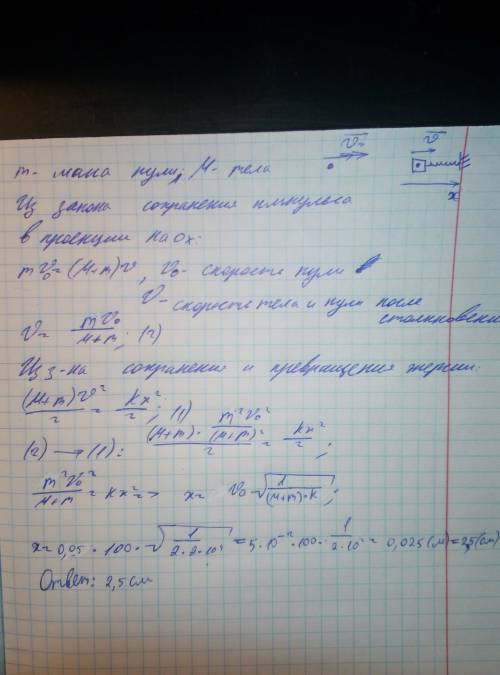 m - масса пули, M - тела
Из закона сохранения импульса
в проекции на Ox:
mv₀ = (M+m)v, v₀ - скорость пули
v - скорость тела и пули после столкновения
v = mv₀/(M+m); (2)
Из з-на сохранения и превращения энергии:
(M+m)v²/2 = kx²/2; (1)
(2) → (1): (M+m)·m²v₀²/(M+m)²/2 = kx²/2;
m²v₀²/(M+m) = kx² => x = v₀ √(1/((M+m)·k));
x = 0,05 · 100 · √(1/(2·2·10⁴)) = 5·10⁻² · 100 · 1/(2·10²) = 0,025 (м) = 2,5 (см)
Ответ: 2,5 см
v₀
v
x